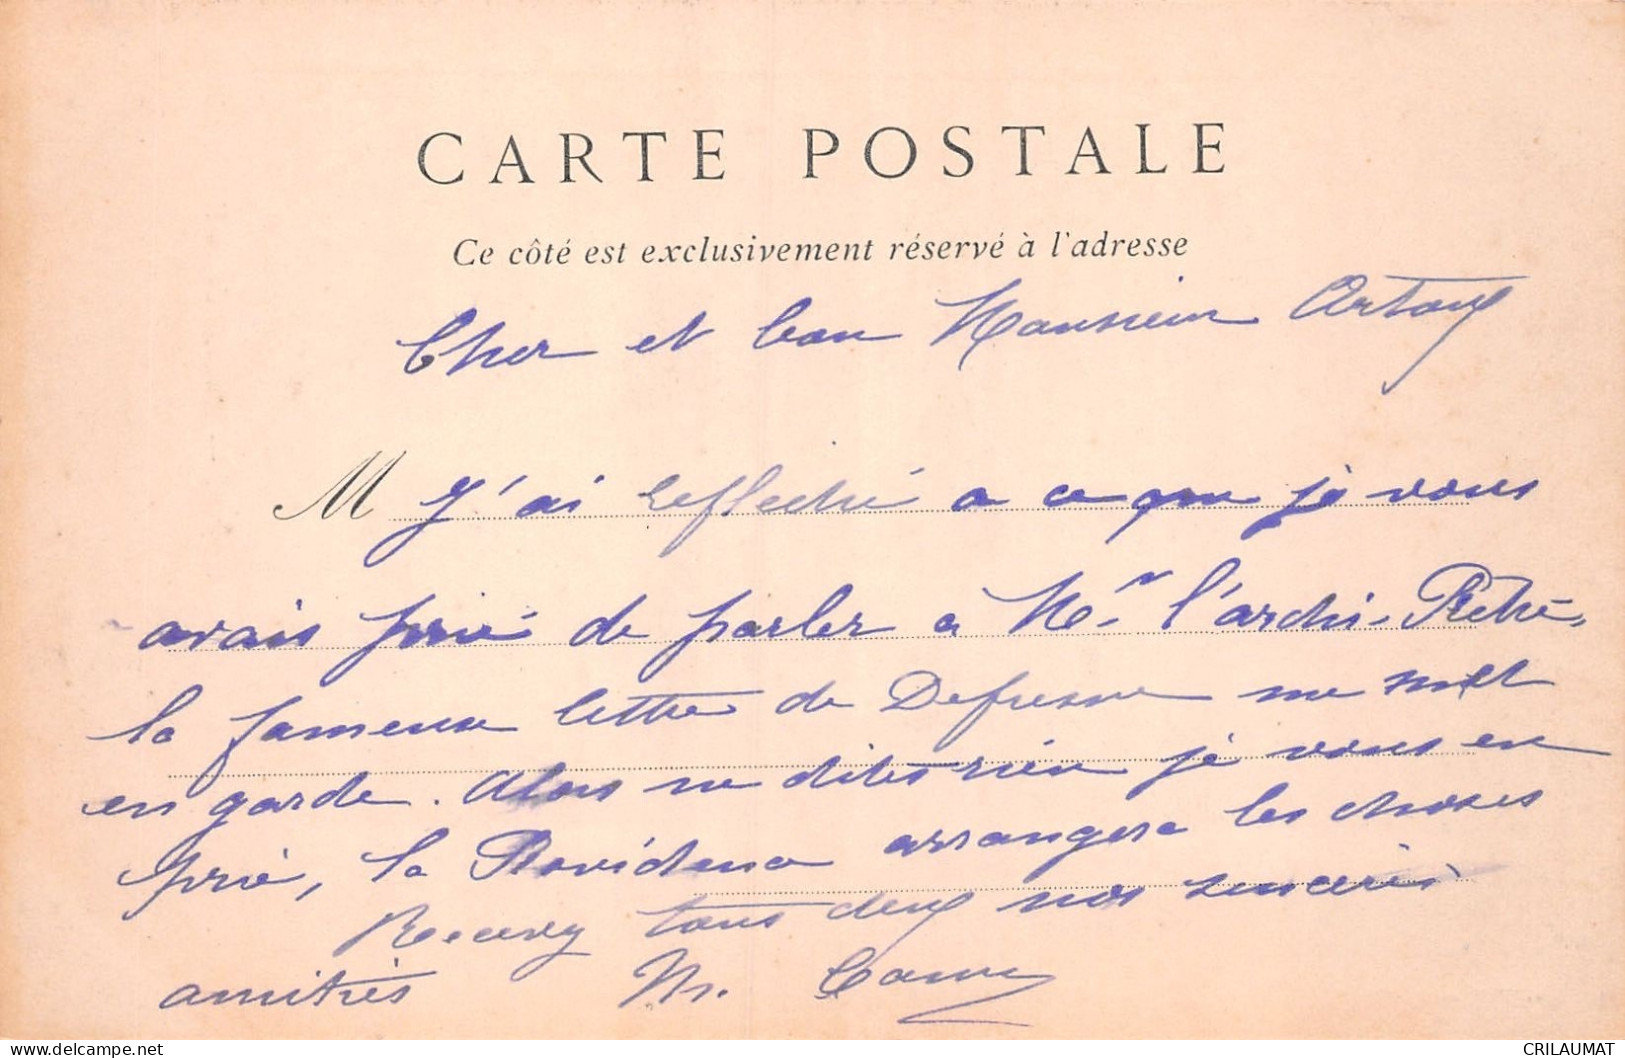 CARTE POSTALE
Ce côté est exclusivement réservé à l'adresse
Cher et bon Monsieur
M J'ai reflechi a ce que je vous
avais prié de parler à Mr l'archi-Prêtre,
la fameuse lettre de Defresne me met
en garde. Alors ne dites rien je vous en
prie, la Providence arrangera les choses
Recevez tous deux nos sincères
amitiés M.
delcampe.net
CRILAUMAT